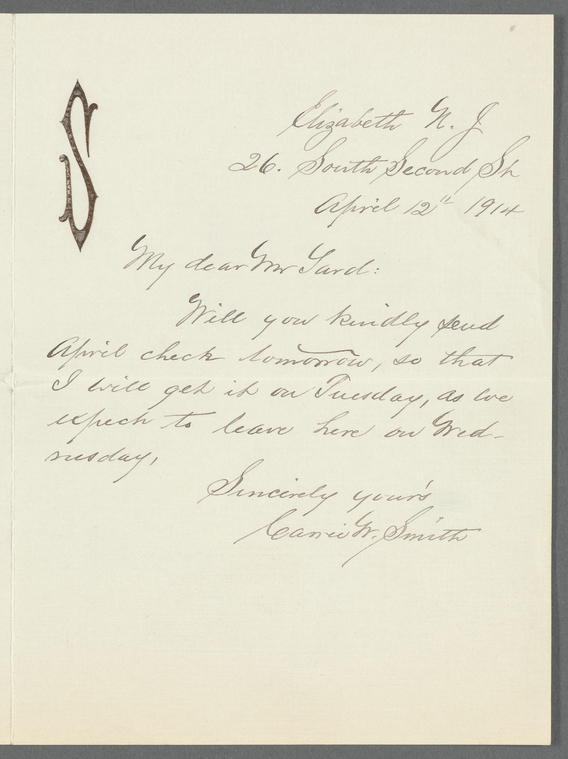 S
Elizabeth N. J.
26. South Second St.
April 12th 1914
My dear Mr Gard:
Will you kindly send
April check tomorrow, so that
I will get it on Tuesday, as we
expect to leave here on Wed-
nesday,
Sincerely your's
Carrie W. Smith